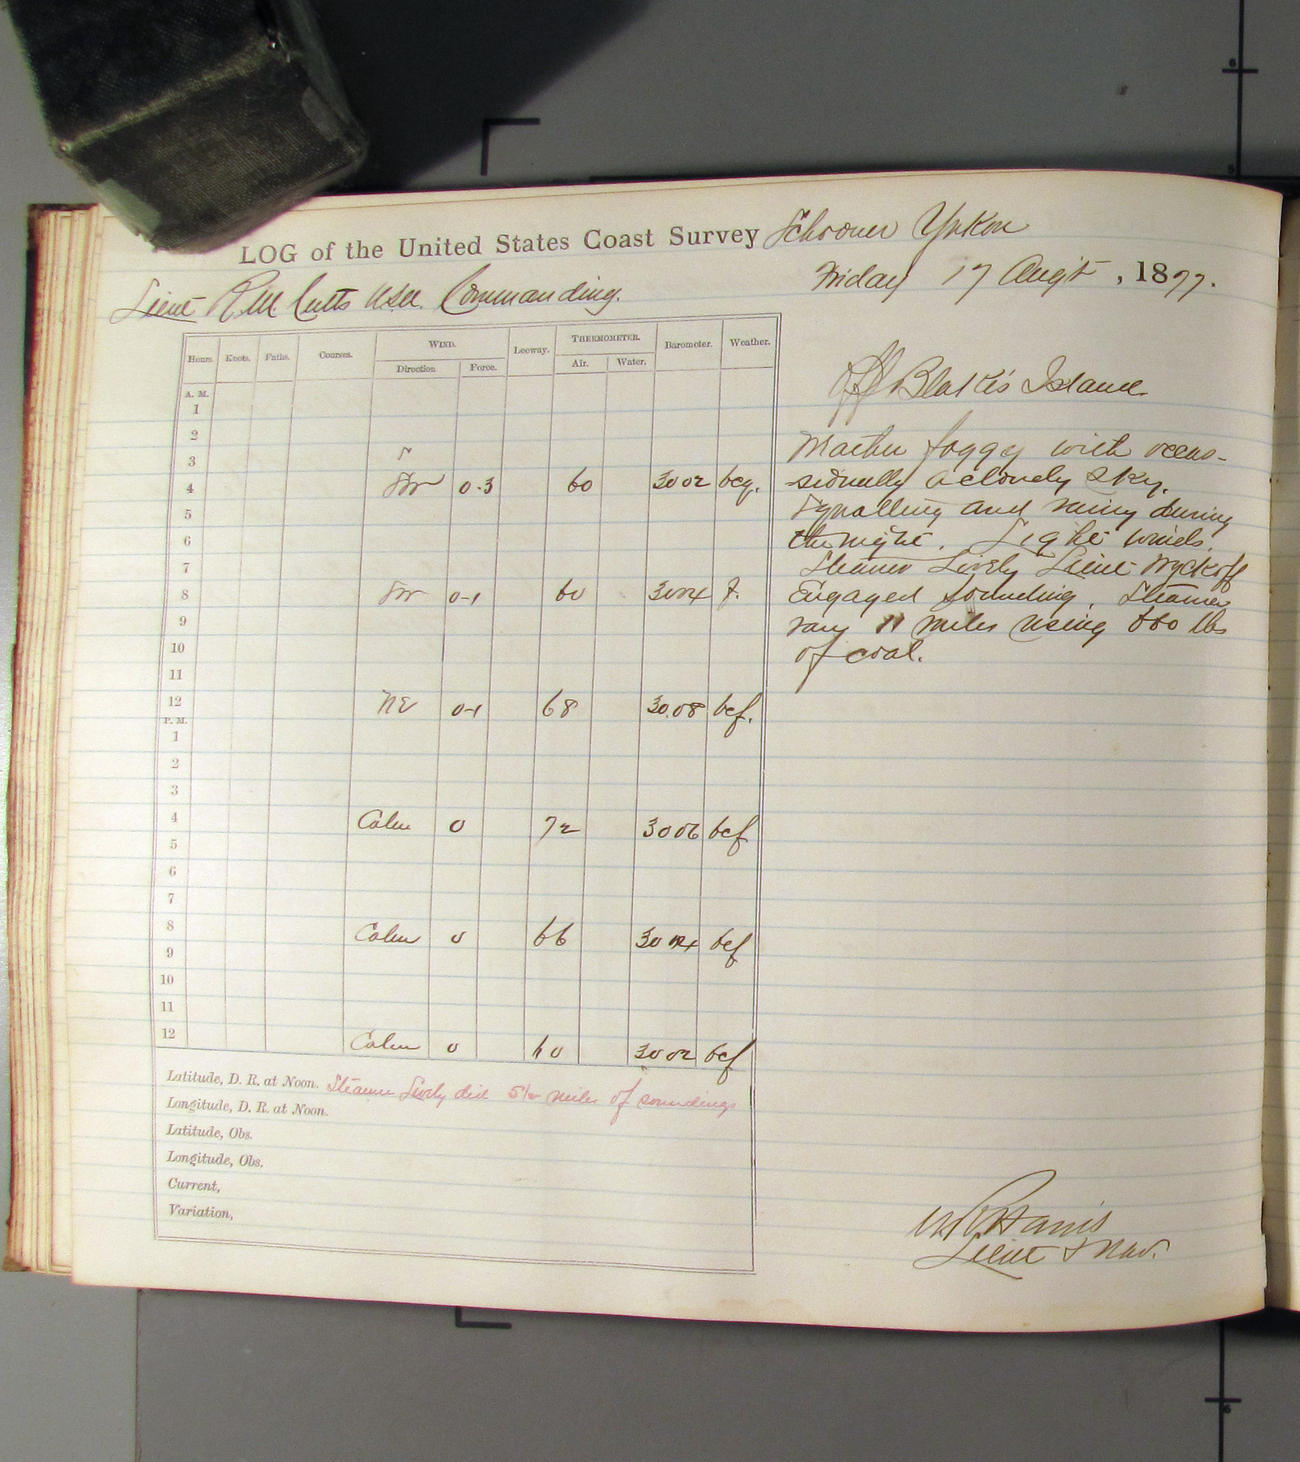 LOG of the United States Coast Survey Schooner Yukon
Friday 17 Augt, 1877.
Lieut R.M. Cutts U.S.N. Commanding.
Hours. Knots. Faths. Courses. WIND. Leeway. THERMOMETER. Barometer. Weather.
Direction Force. Air. Water.
A. M.
1
2
3
4 0-3 60 3002 bcq.
5
6
7
8 0-1 60 3004 f.
9
10
11
12 NE 0-1 68 30.08 bcf.
P. M.
1
2
3
4 Calm 0 72 3006 bcf
5
6
7
8 Calm 0 66 3004 bcf
9
10
11
12 Calm 0 60 3002 bcf
Latitude, D. R. at Noon. Steamer Lively did 5½ miles of soundings
Longitude, D. R. at Noon.
Latitude, Obs.
Longitude, Obs.
Current,
Variation,
Off Blake's Island
foggy with occas-
sionally a cloudy sky.
Squalling and rainy during
the night. Light winds.
Steamer Lively Lieut Wyckoff
Engaged sounding. Steamer
11 miles using lbs
of coal.
Harris
Lieut & Nav.
6
6